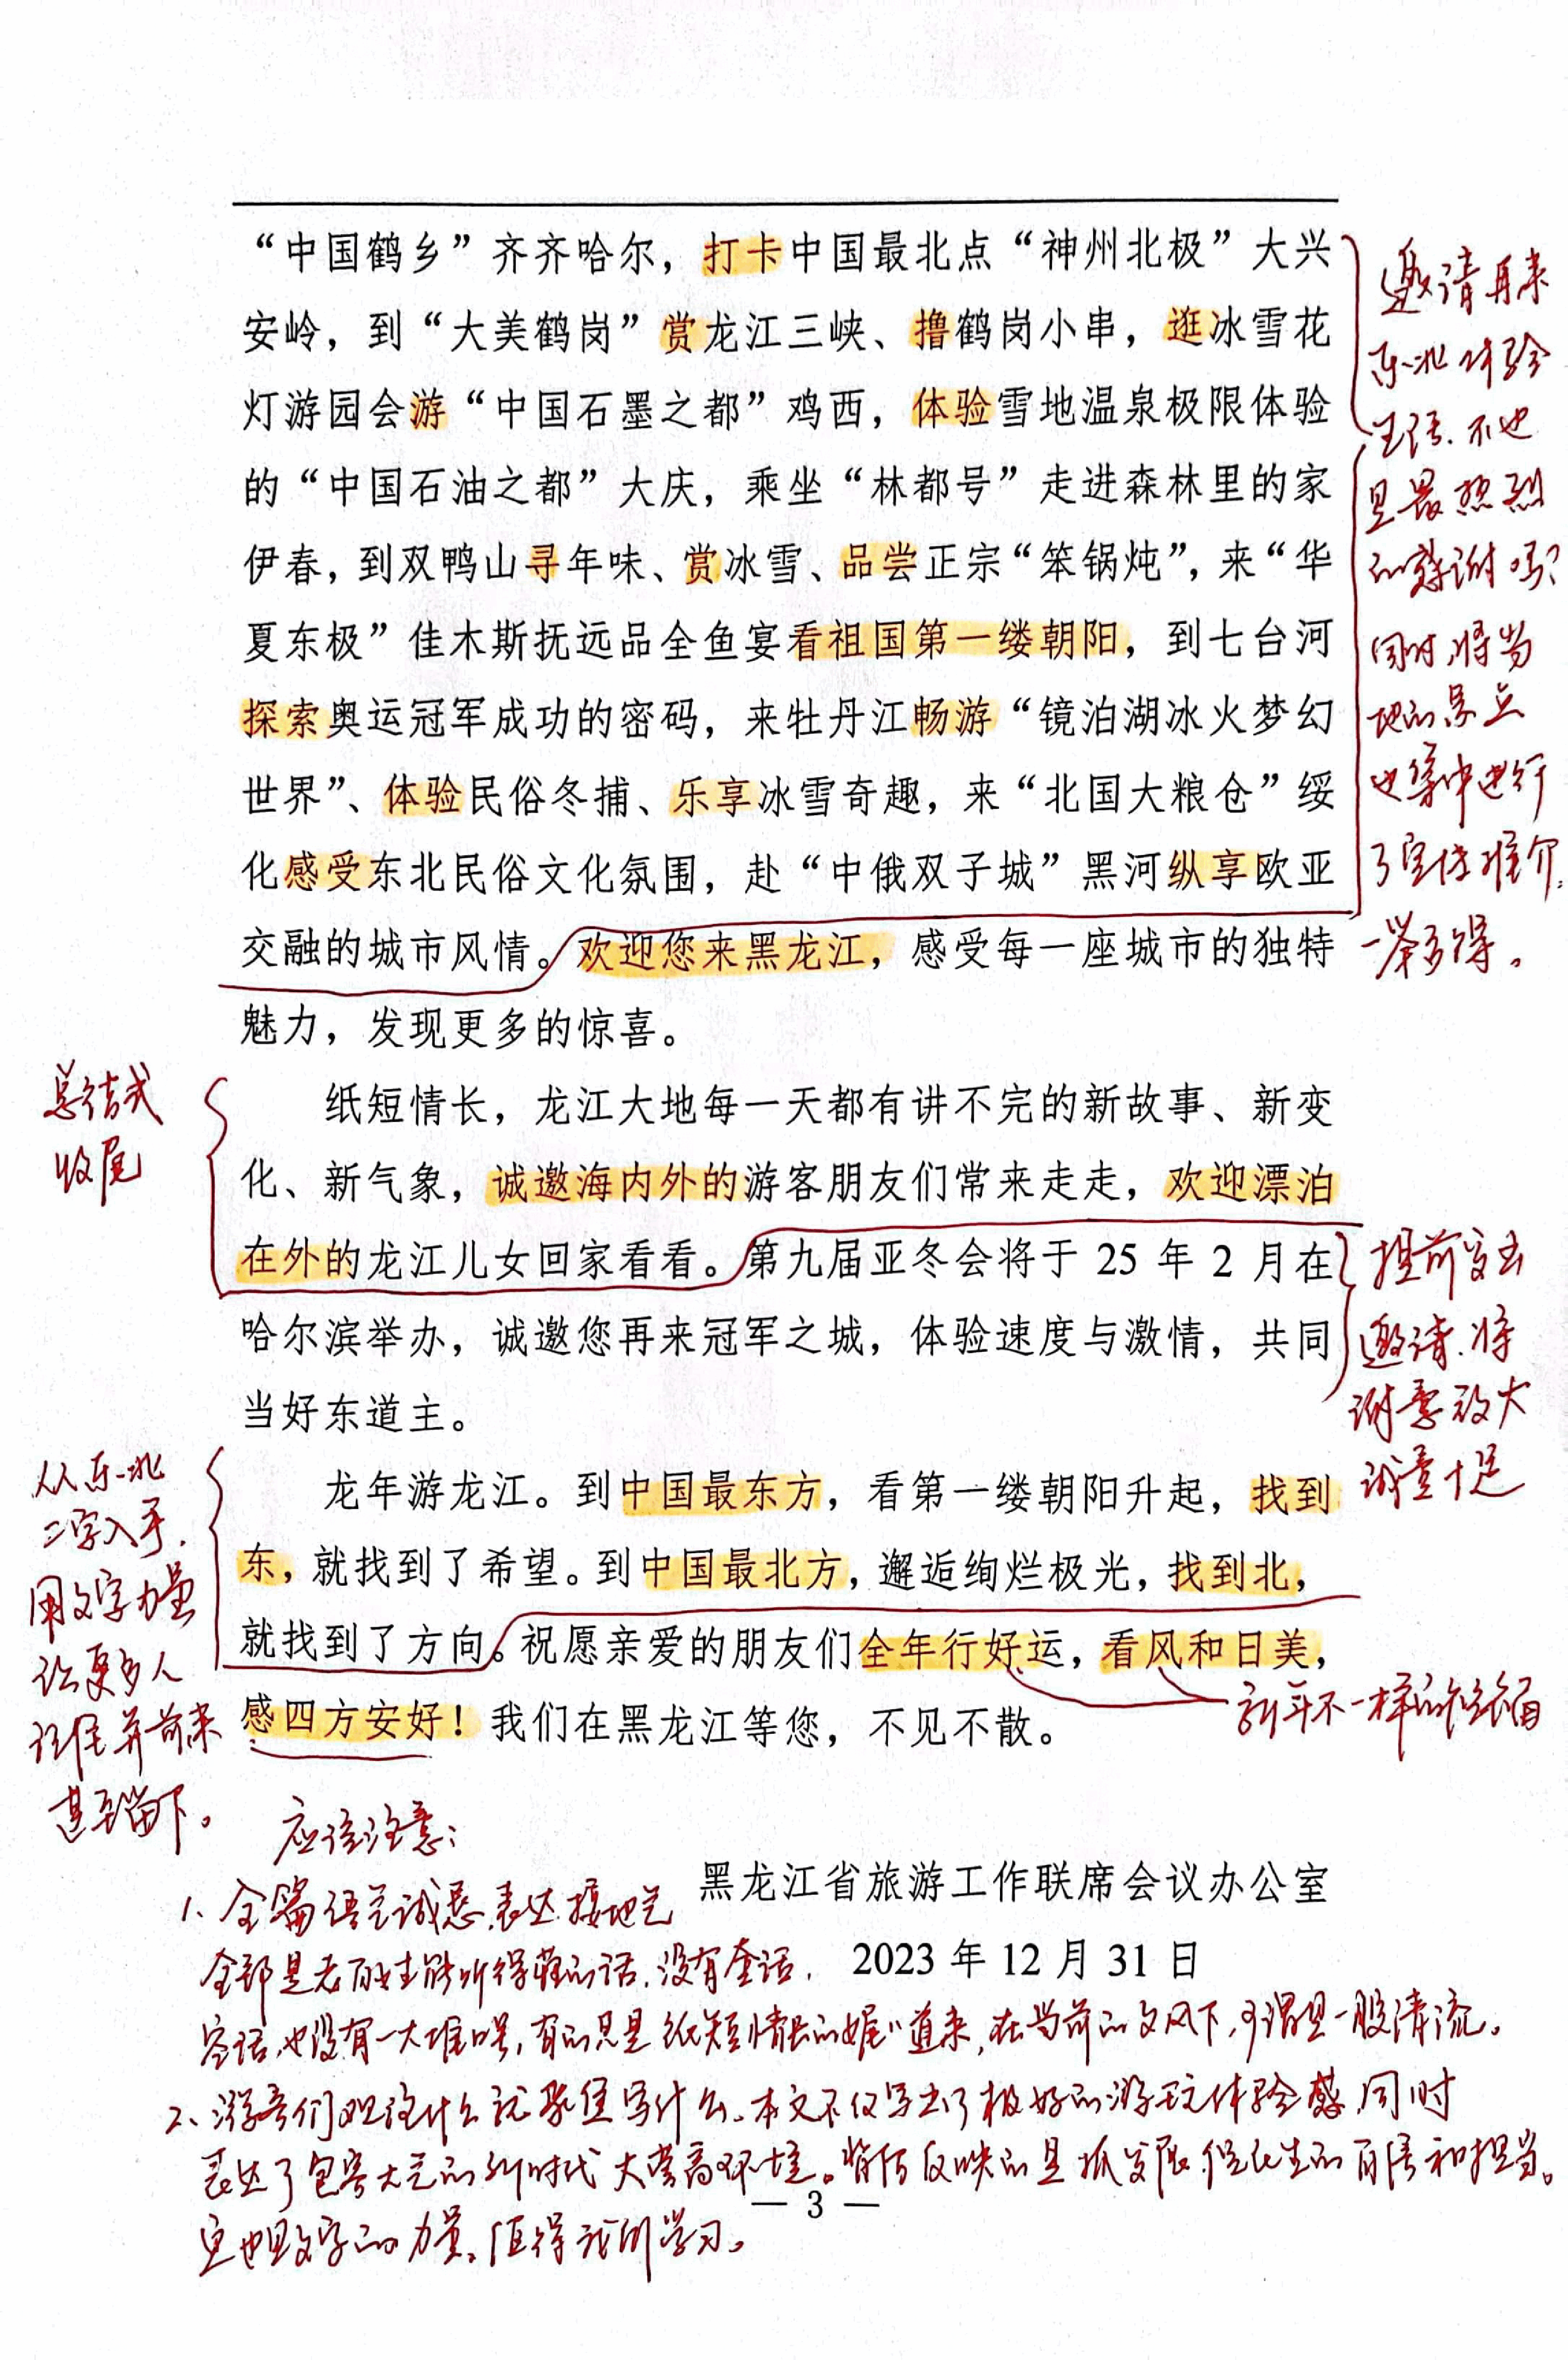 “中国鹤乡”齐齐哈尔，打卡中国最北点“神州北极”大兴
安岭，到“大美鹤岗”赏龙江三峡、撸鹤岗小串，逛冰雪花
灯游园会游“中国石墨之都”鸡西，体验雪地温泉极限体验
的“中国石油之都”大庆，乘坐“林都号”走进森林里的家
伊春，到双鸭山寻年味、赏冰雪、品尝正宗“笨锅炖”，来“华
夏东极”佳木斯抚远品全鱼宴看祖国第一缕朝阳，到七台河
探索奥运冠军成功的密码，来牡丹江畅游“镜泊湖冰火梦幻
世界”、体验民俗冬捕、乐享冰雪奇趣，来“北国大粮仓”绥
化感受东北民俗文化氛围，赴“中俄双子城”黑河纵享欧亚
交融的城市风情。欢迎您来黑龙江，感受每一座城市的独特
魅力，发现更多的惊喜。
邀请再来
东北体验
生活.不也
是最热烈
的感谢吗？
同时,将当
地的景点
也集中进行
了宣传推介,
一举多得。
总结式
收尾
纸短情长，龙江大地每一天都有讲不完的新故事、新变
化、新气象，诚邀海内外的游客朋友们常来走走，欢迎漂泊
在外的龙江儿女回家看看。第九届亚冬会将于 25 年 2 月在
哈尔滨举办，诚邀您再来冠军之城，体验速度与激情，共同
当好东道主。
提前发出
邀请.将
谢意放大
诚意十足
从东北
二字入手,
用文字力量
让更多人
记住并前来
甚至留下。
龙年游龙江。到中国最东方，看第一缕朝阳升起，找到
东，就找到了希望。到中国最北方，邂逅绚烂极光，找到北，
就找到了方向。祝愿亲爱的朋友们全年行好运，看风和日美，
感四方安好！我们在黑龙江等您，不见不散。
新年不一样的祝福
应该注意：
黑龙江省旅游工作联席会议办公室
2023 年 12 月 31 日
1、全篇语言诚恳,表达接地气
全部是老百姓能听得懂的话,没有套话,
客话,也没有一大堆口号,有的只是纸短情长的娓娓道来,在当前的文风下,可谓是一股清流。
2、游客们想说什么就聚焦写什么,本文不仅写出了极好的游玩体验感,同时
表达了包容大气的新时代大营商环境。背后反映的是抓发展,促民生的自信和担当。
这也是文字的力量,值得我们学习。
— 3 —